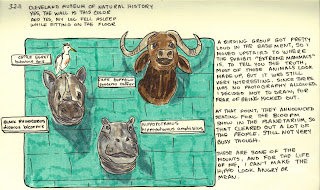 32A
CLEVELAND MUSEUM OF NATURAL HISTORY
YES, THE WALL IS THIS COLOR
AND YES, MY LEG FELL ASLEEP
WHILE SITTING ON THE FLOOR
CATTLE EGRET
CAPE BUFFALO
BLACK RHINOCEROS
HIPPOPOTAMUS
A BIRDING GROUP GOT PRETTY
LOUD IN THE BASEMENT, SO I
MOVED UPSTAIRS TO WHERE
THE EXHIBIT "EXTREME MAMMALS"
IS. TO TELL YOU THE TRUTH,
SOME OF THESE ANIMALS LOOK
MADE UP. BUT IT WAS STILL
VERY INTERESTING. SINCE THERE
WAS NO PHOTOGRAPHY ALLOWED,
I DECIDED NOT TO DRAW, FOR
FEAR OF BEING KICKED OUT.
AT THAT POINT, THEY ANNOUNCED
SEATING FOR THE
SHOW IN THE PLANETARIUM, SO
THAT CLEARED OUT A LOT OF
THE PEOPLE. STILL NOT VERY
BUSY THOUGH.
THESE ARE SOME OF THE
MOUNTS, AND FOR THE LIFE
OF ME, I CAN'T MAKE THE
HIPPO LOOK ANGRY OR
MEAN.